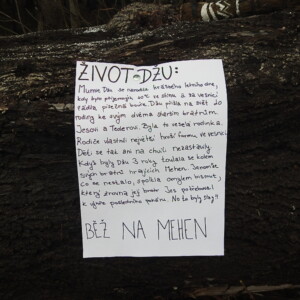 ŽIVOT DŽU:
Mumie Džu se narodila krásného letního dne,
kdy bylo příjemných 40°C ve stínu a za vesnicí
řádila písečná bouře. Džu přišla na svět do
rodiny ke svým dvěma starším bratrům,
Jesovi a Teodorovi. Byla to veselá rodinka.
Rodiče vlastnili největší hroší farmu ve vesnici.
Děti se tak ani na chvíli nezastavily.
Když byly Džu 3 roky toulala se kolem
svých bratrů hrajících Mehen. Jenomže
co se nestalo, spolkla omylem kámen,
který zrovna její bratr Jes potřeboval
k výhře posledního pokoru. No to byly časy!!
BĚŽ NA MEHEN